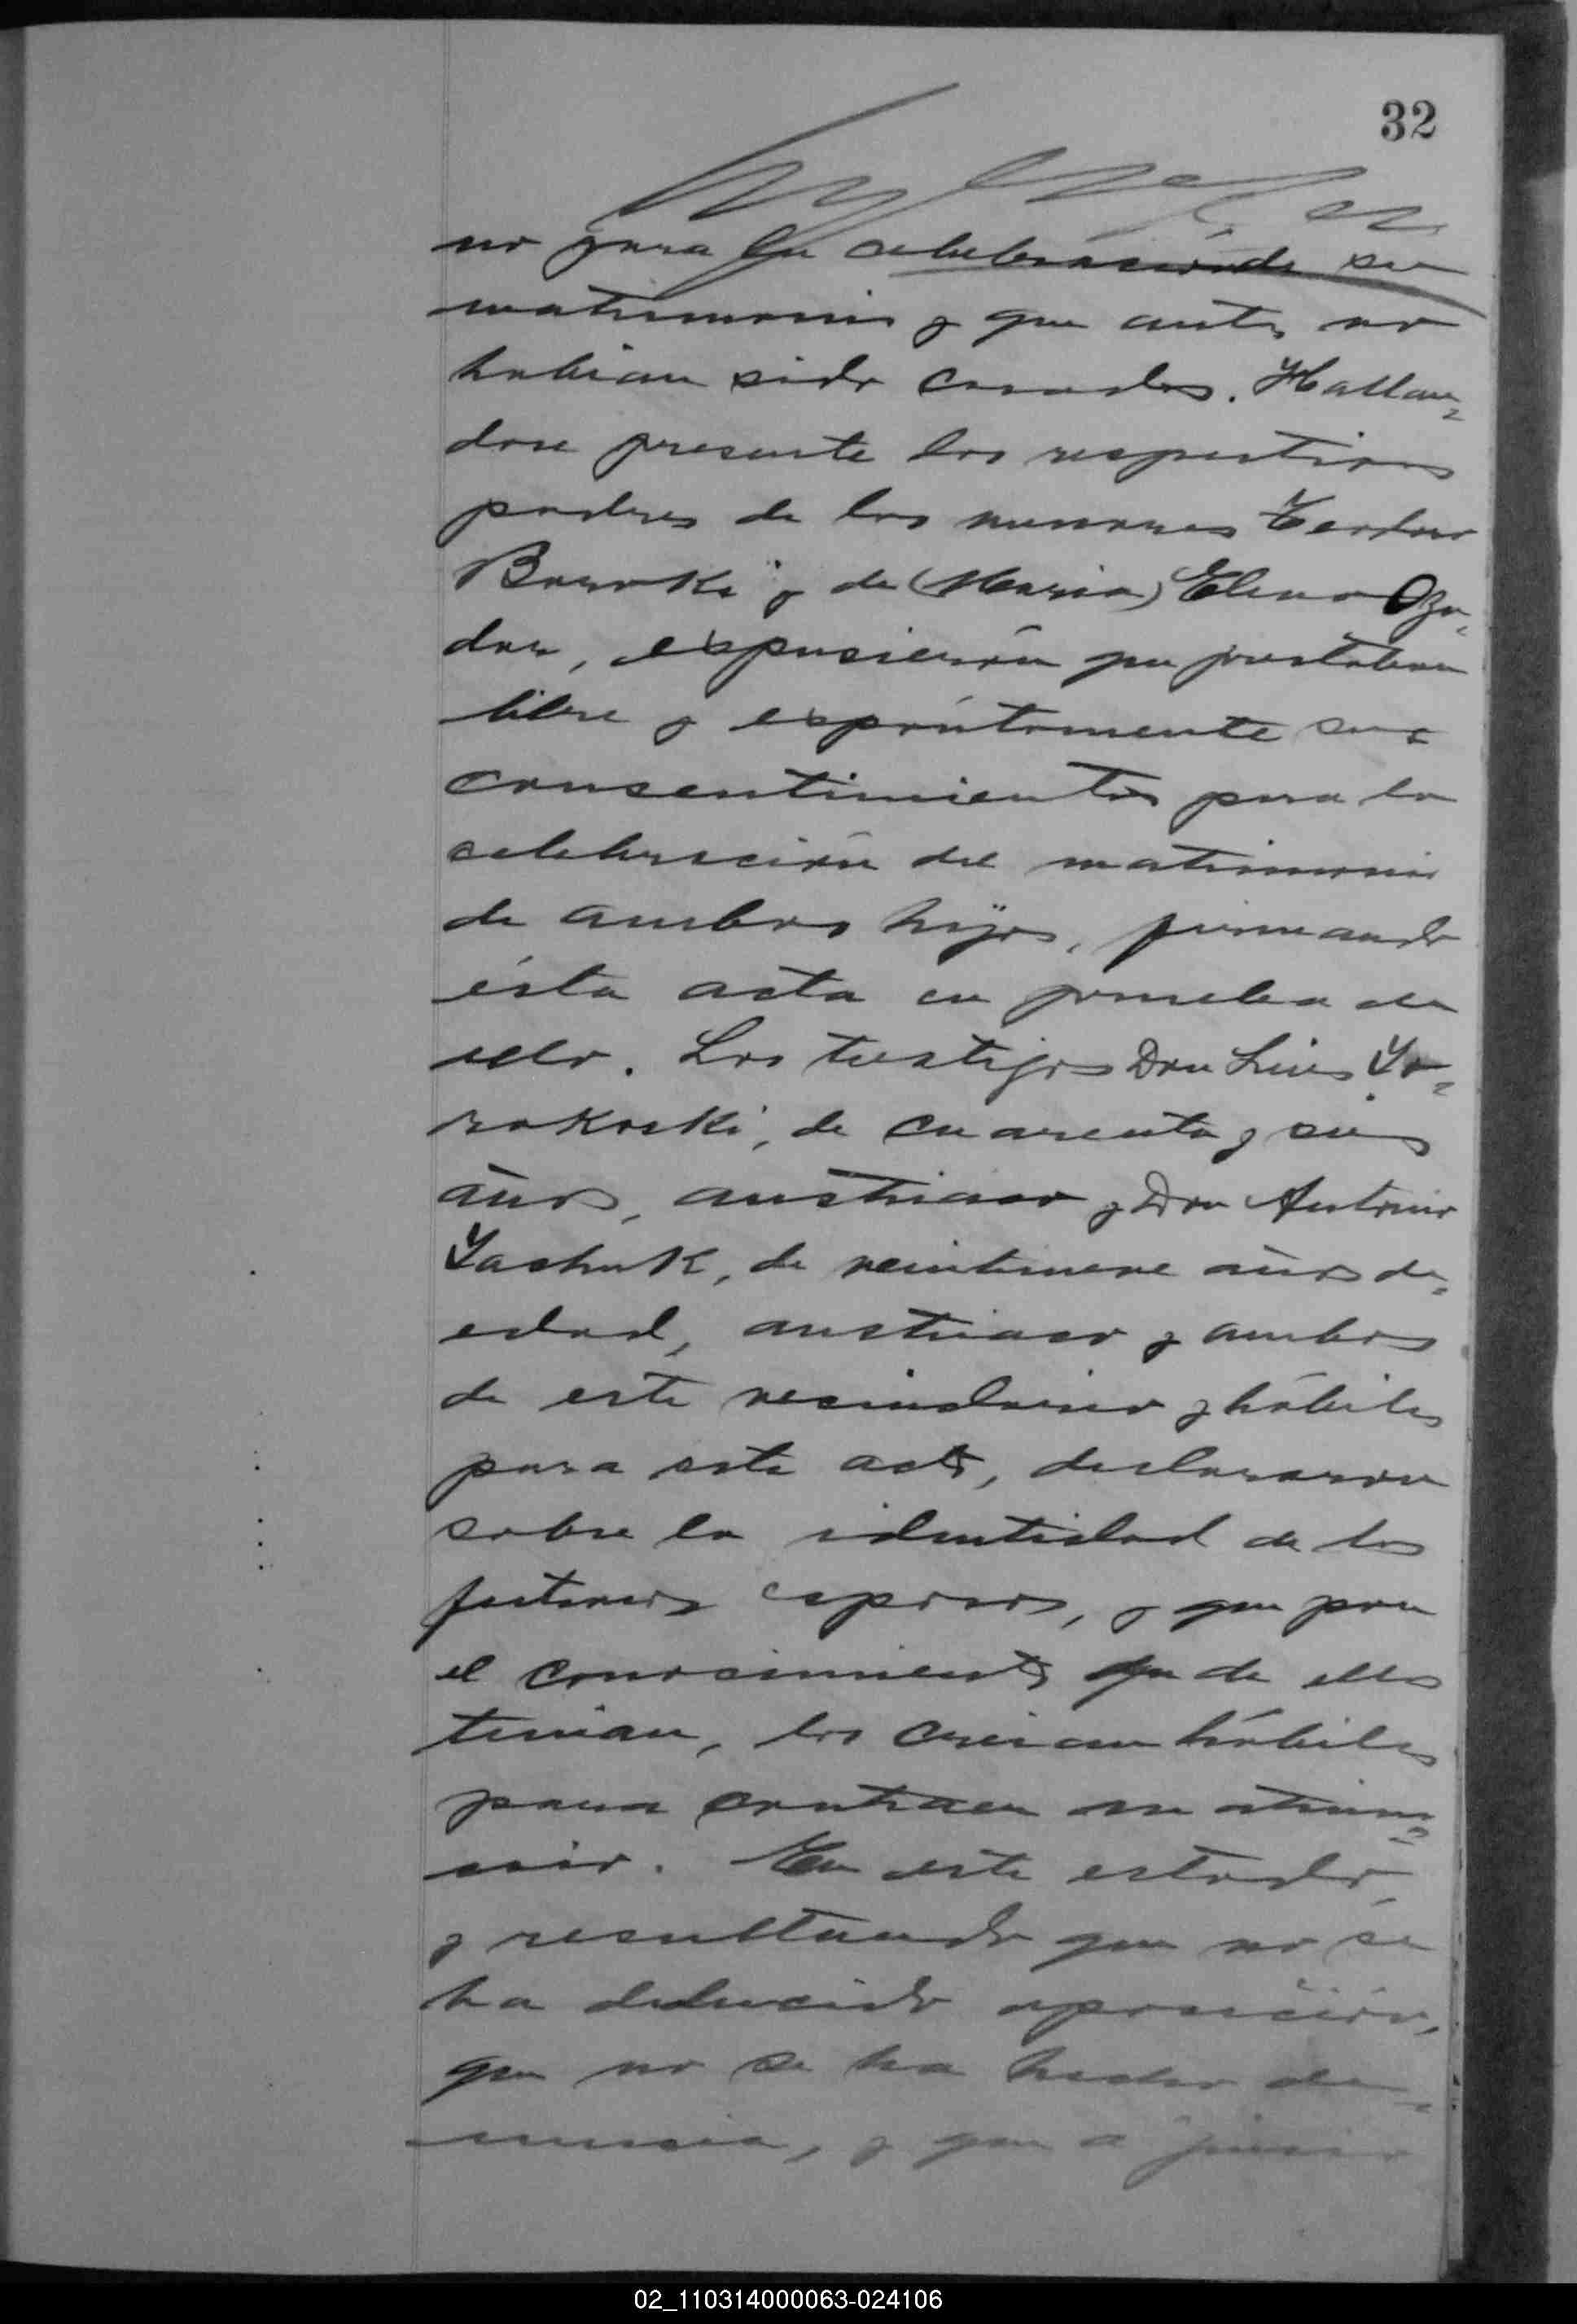 32
no para la celebración de su
matrimonio y que antes no
habian sido casados. Hallan=
dose presente los respectivos
padres de los menores Teodoro
Boroski y de (Maria) Elena Oza=
dor, expusierón que prestaban
libre y expontamente sus
consentimientos para la
celebración del matrimonio
de ambos hijos, firmando
ésta acta en prueba de
ello. Los testigos Don Luis Yo=
rokoski, de cuarenta y seis
años, austriaco y Don Antonio
Yashuk, de veintinueve años de=
edad, austriaco y ambos
de este vecindario y hábiles
para este acto, declararon
sobre la identidad de los
futuros esposos, y que por
el conocimiento que de ellos
tenian, los creian hábiles
para contraer matrimo=
nio. En este estado,
y resultando que no se
ha deducido oposición,
que no se ha hecho de=
nuncia, y que a juicio
02_110314000063-024106